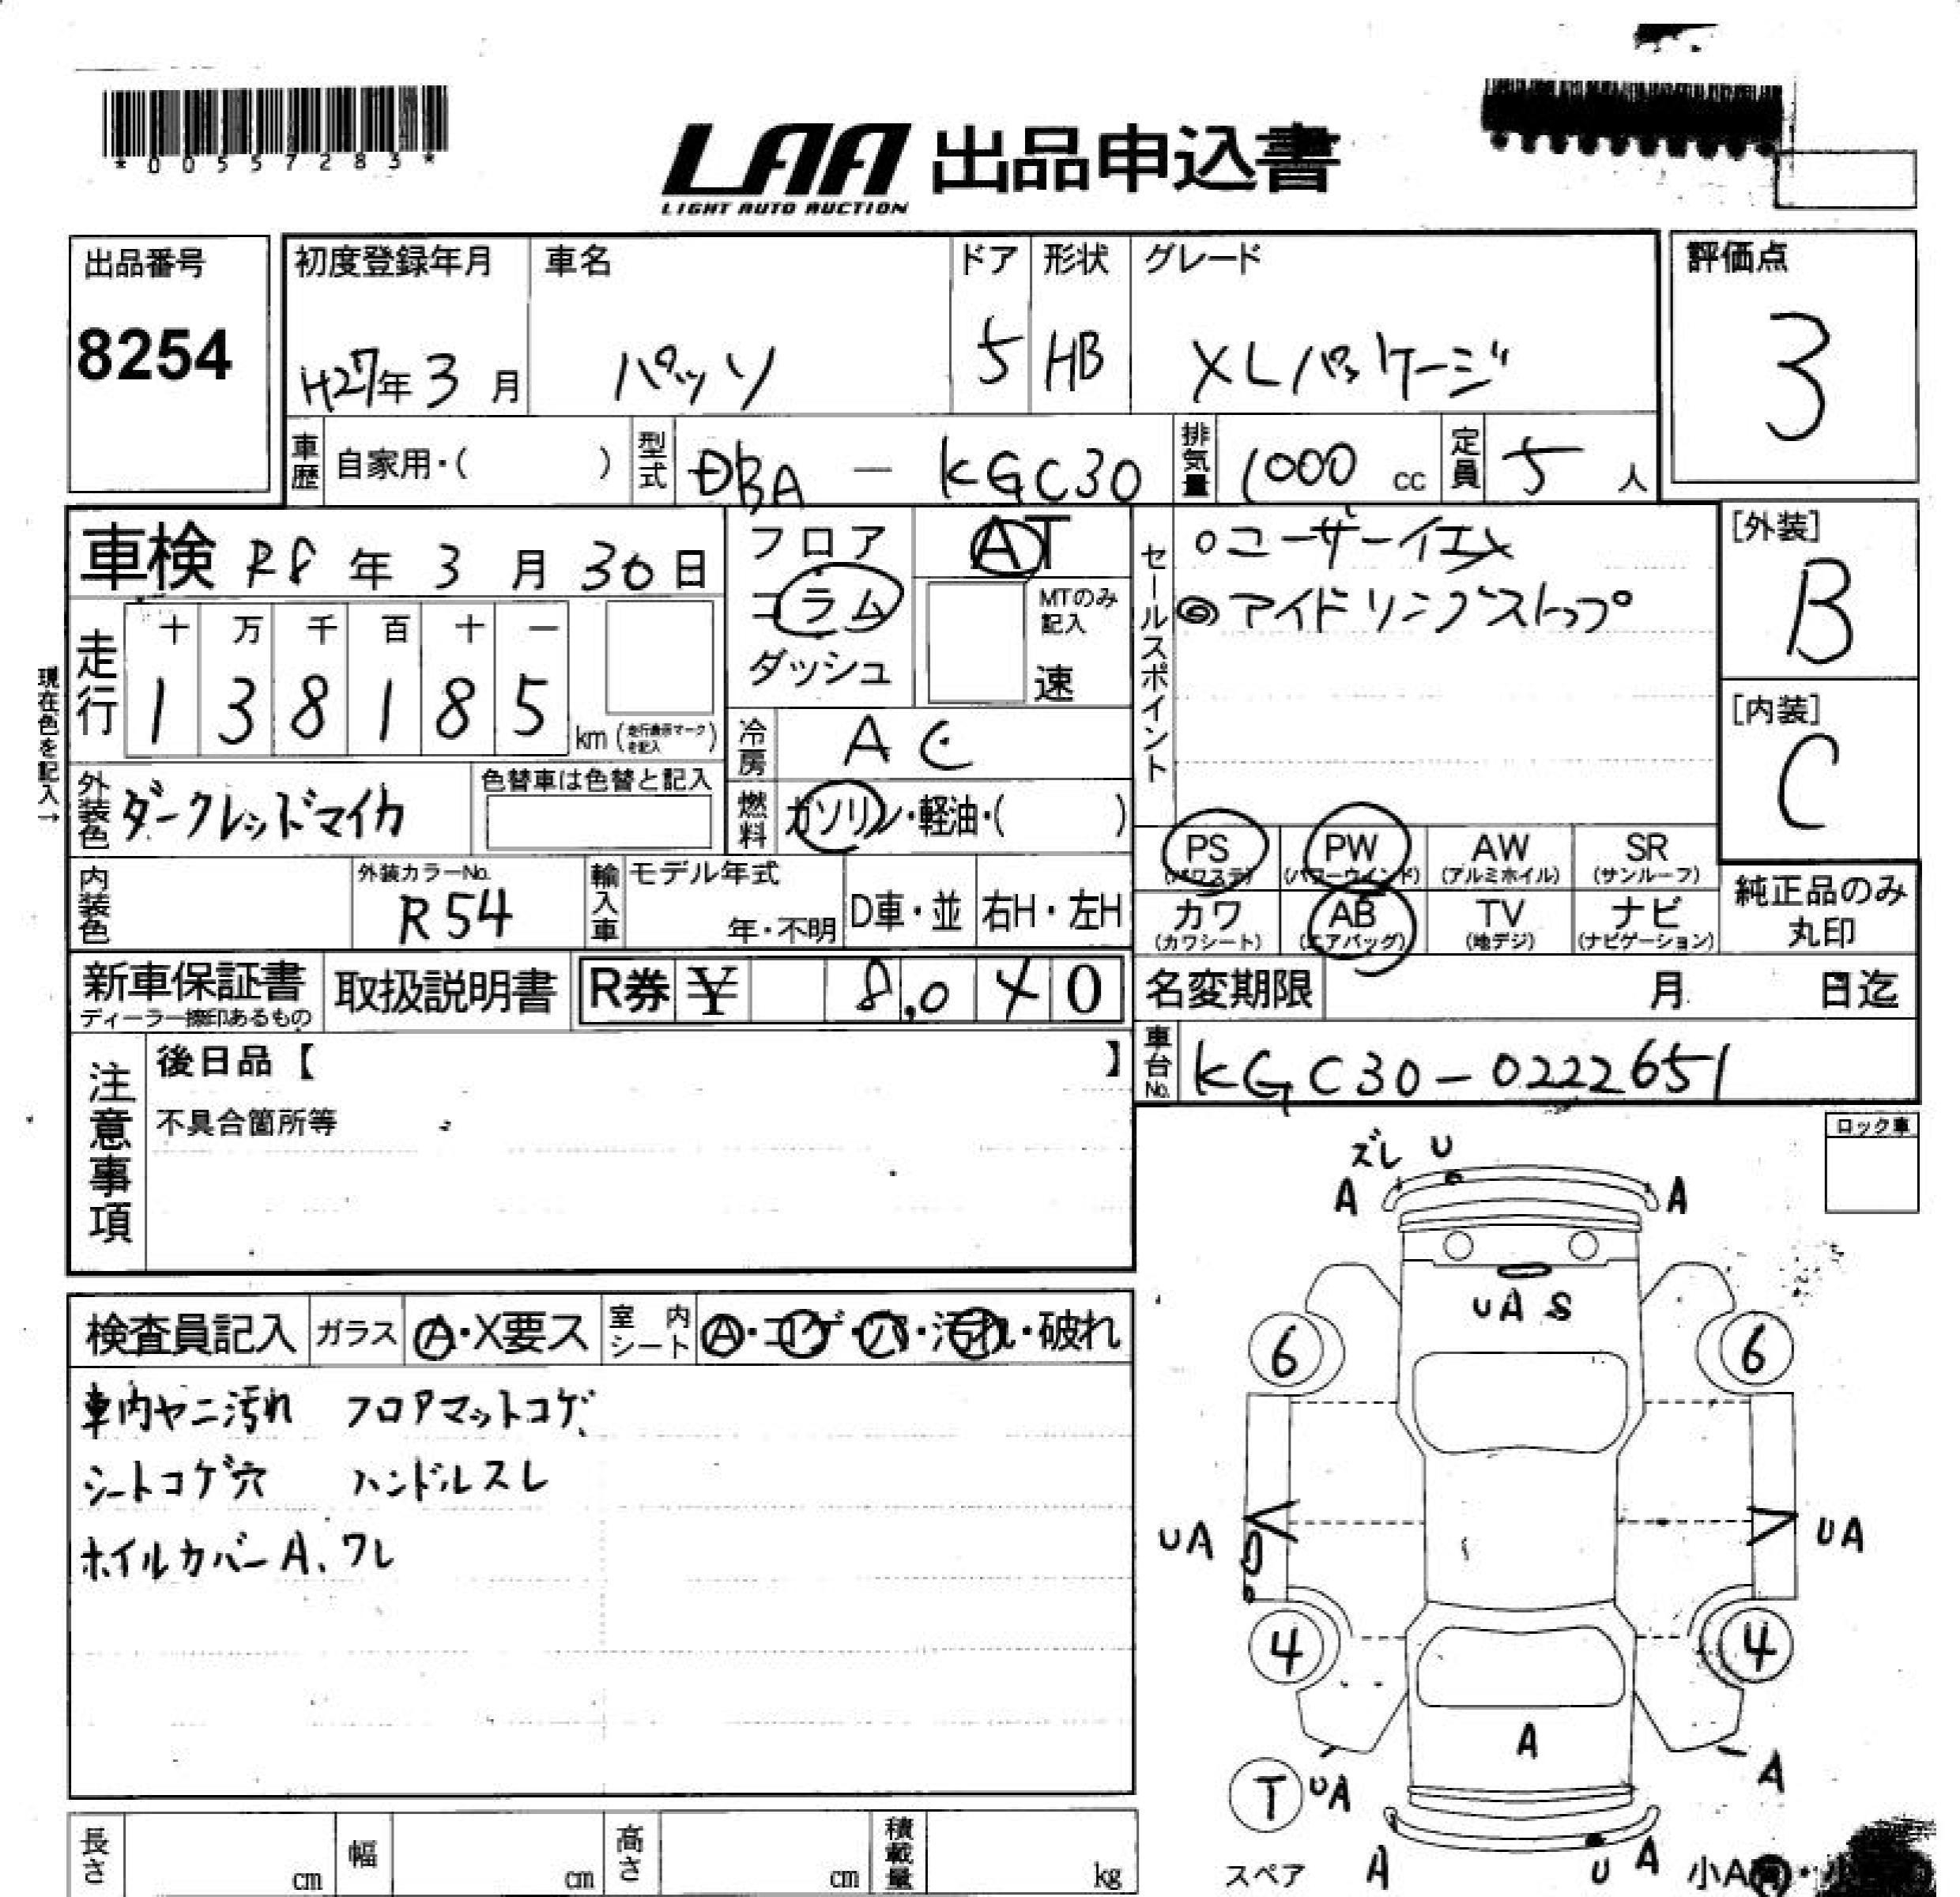 *00557283*
LAA 出品申込書
LIGHT AUTO AUCTION
出品番号
8254
初度登録年月
H27年3月
車名
パッソ
ドア
5
形状
HB
グレード
XLパッケージ
評価点
3
車歴 自家用・( )
型式 DBA － KGC30
排気量 1000 cc
定員 5 人
車検 R8年 3月 30日
フロア
コラム
ダッシュ
AT
MTのみ
記入
速
セールスポイント
○ユーザーイエメ
◎アイドリングストップ
[外装]
B
[内装]
C
走行
十 万 千 百 十 一
1 3 8 1 8 5
km (走行表示マークを記入)
現在色を記入→
冷房 AC
外装色 ダークレッドマイカ
色替車は色替と記入
燃料 ガソリン・軽油・( )
PS
(パワステ)
PW
(パワーウインド)
AW
(アルミホイル)
SR
(サンルーフ)
カワ
(カワシート)
AB
(エアバッグ)
TV
(地デジ)
ナビ
(ナビゲーション)
純正品のみ
丸印
内装色
外装カラーNo.
R54
輸入車
モデル年式
年・不明
D車・並
右H・左H
新車保証書
ディーラー捺印あるもの
取扱説明書
R券 ¥ 8,040
名変期限 月 日迄
車台No. KGC30-0222651
注意事項
後日品【 】
不具合箇所等
ロック車
ズレ U
A A
UAS
6 6
UA UA
4 4
A
T UA A
A U A
スペア
検査員記入
ガラス A・X要ス
室内シート A・コゲ・穴・汚れ・破れ
車内ヤニ汚れ フロアマットコゲ
シートコゲ穴 ハンドルスレ
ホイルカバーA、ワレ
長さ cm
幅 cm
高さ cm
積載量 kg
小A